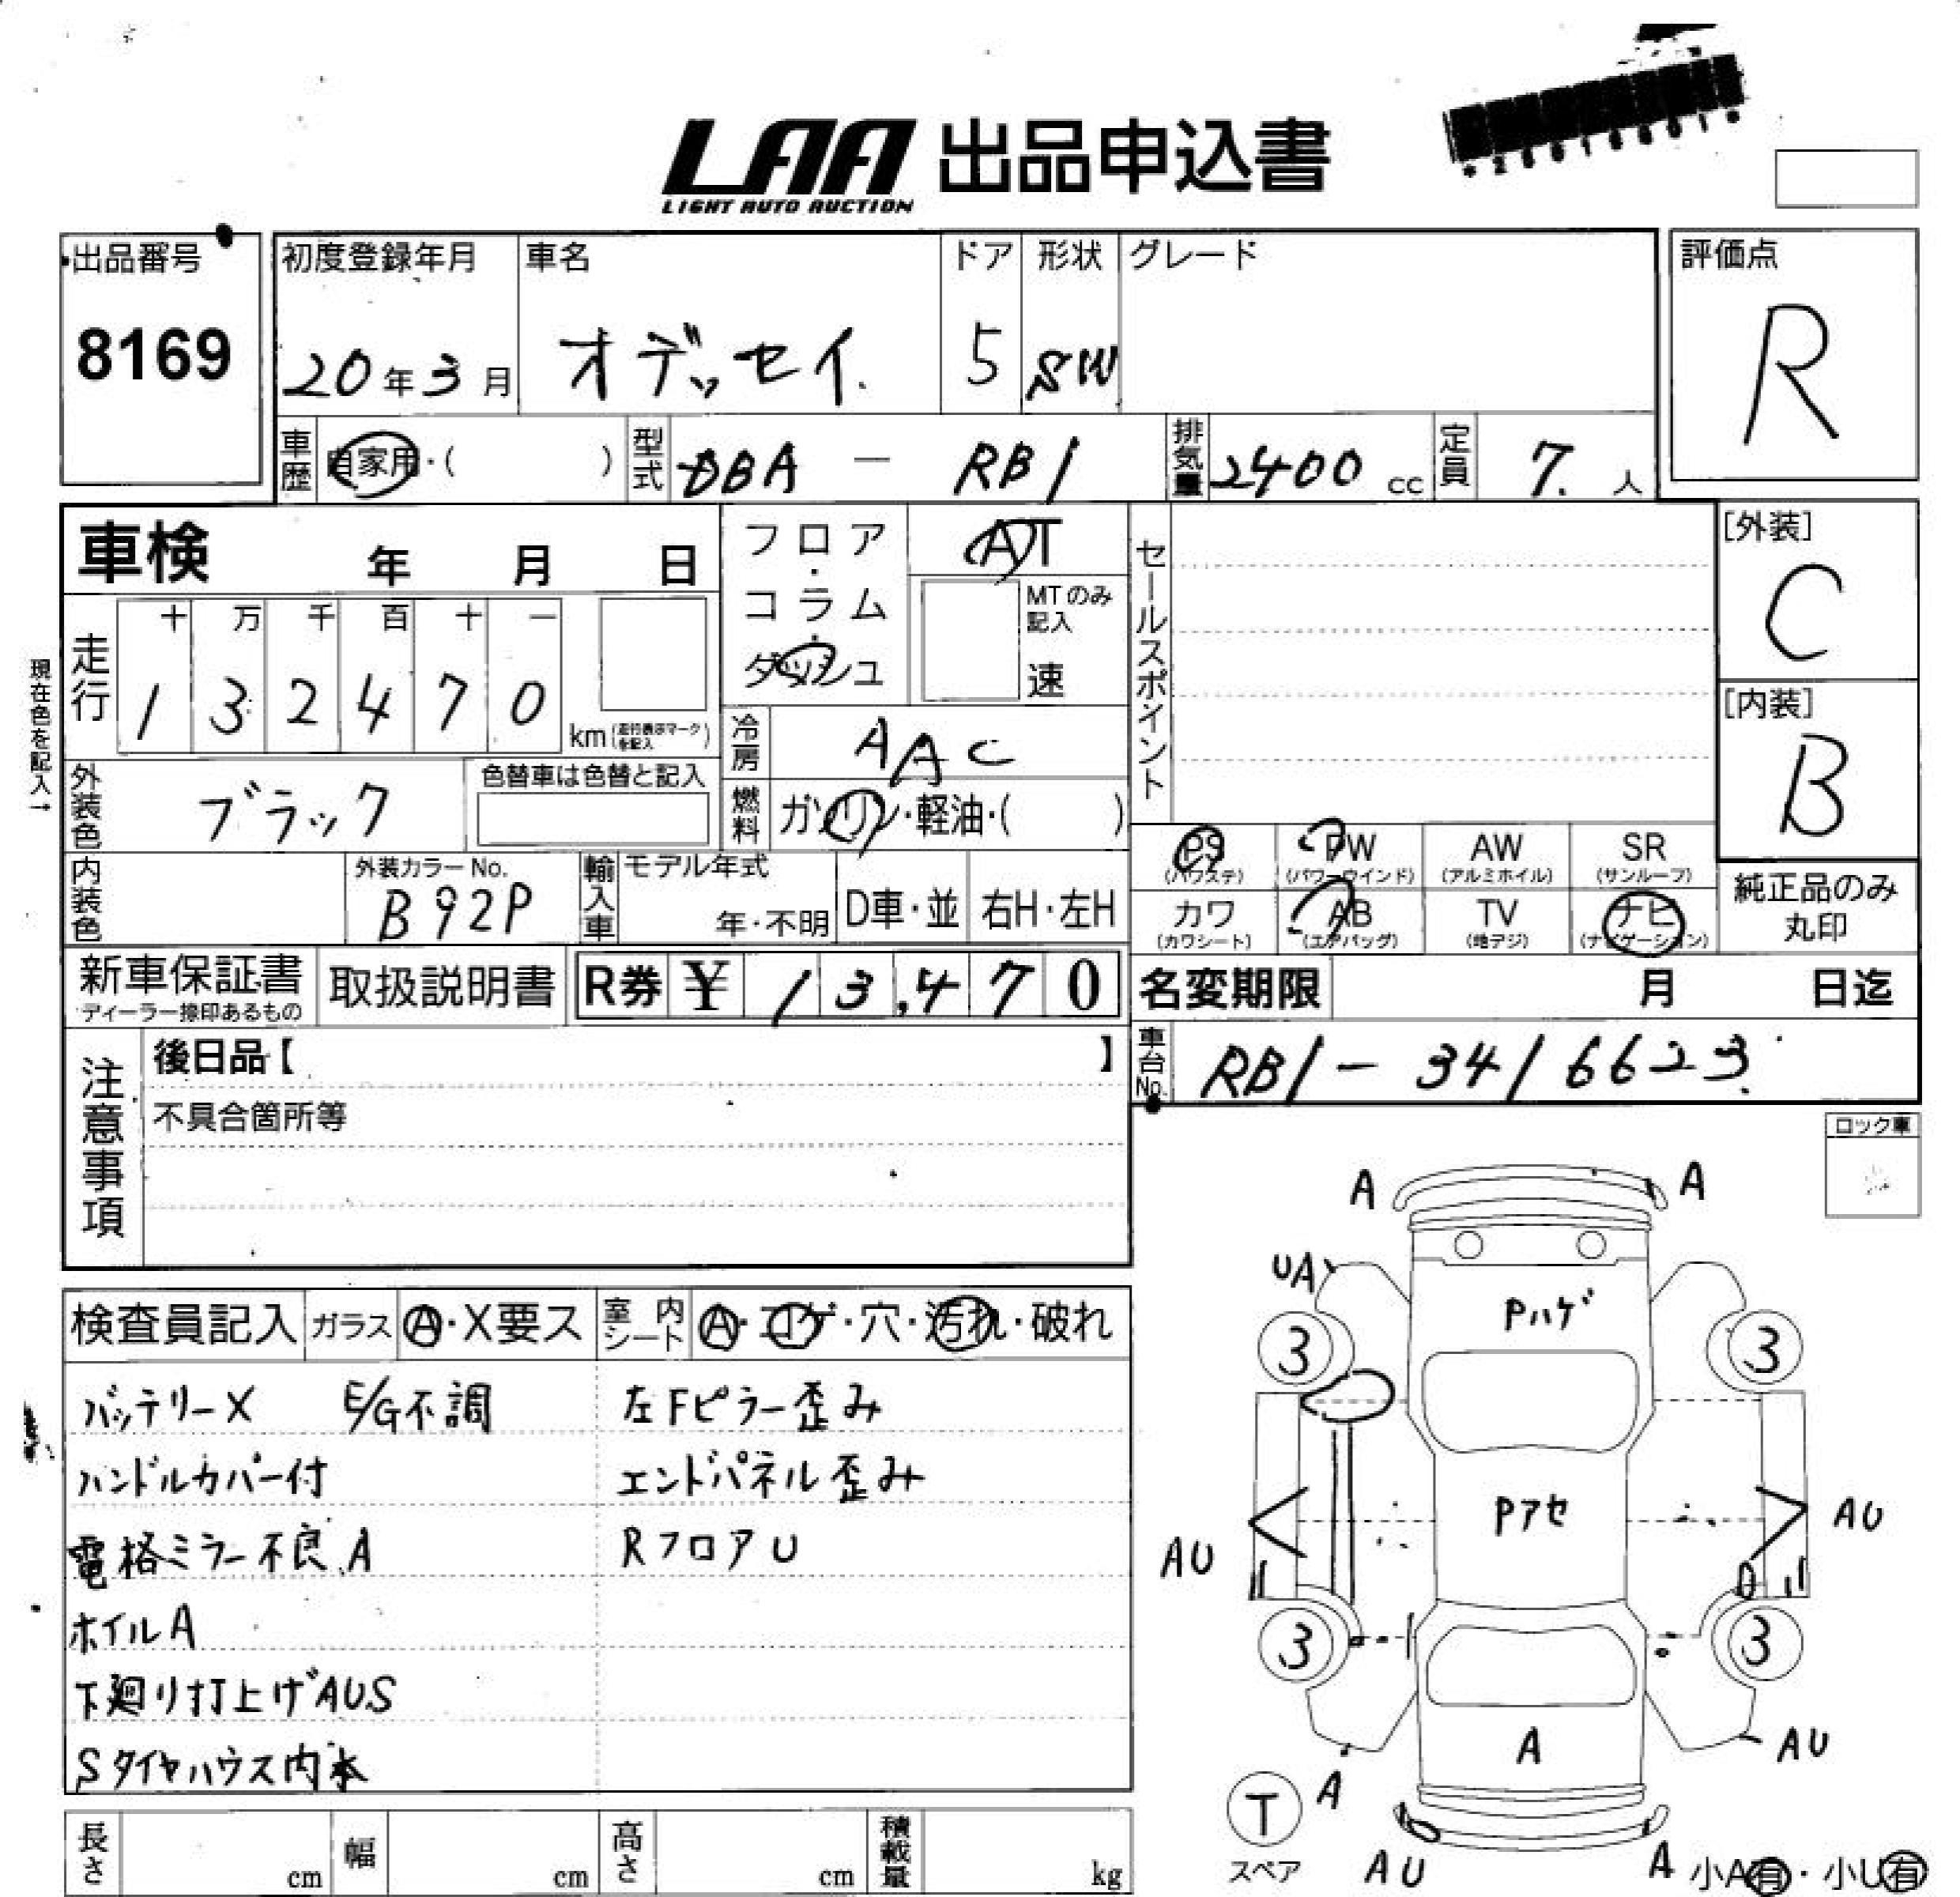 LAA 出品申込書
LIGHT AUTO AUCTION
出品番号
8169
初度登録年月
20年3月
車名
オデッセイ
ドア
5
形状
SW
グレード
評価点
R
車歴
自家用・( )
型式
DBA － RB1
排気量
2400 cc
定員
7. 人
車検 年 月 日
フロア・コラム・ダッシュ
AT
MTのみ記入
速
セールスポイント
[外装]
C
[内装]
B
現在色を記入→
走行
十 万 千 百 十 一
1 3 2 4 7 0
km (走行表示マークを記入)
冷房
AAC
外装色
ブラック
色替車は色替と記入
燃料
ガソリン・軽油・( )
PS (パワステ)
PW (パワーウインド)
AW (アルミホイル)
SR (サンルーフ)
カワ (カワシート)
AB (エアバッグ)
TV (地デジ)
ナビ (ナビゲーション)
純正品のみ
丸印
内装色
外装カラーNo.
B92P
輸入車
モデル年式
年・不明
D車・並
右H・左H
新車保証書
ディーラー捺印あるもの
取扱説明書
R券 ¥ 13,470
名変期限 月 日迄
注意事項
後日品【 】
不具合箇所等
車台No.
RB1－3416623
ロック車
検査員記入
ガラス
A・X要ス
室内シート
A・コゲ・穴・汚れ・破れ
バッテリーX E/G不調
左Fピラー歪み
ハンドルカバー付
エンドパネル歪み
電格ミラー不良 A
RフロアU
ホイルA
下廻り打上げAUS
Sタイヤハウス内
A
A
UA
Pハゲ
3
3
Pアセ
AU
AU
3
3
A
AU
A
T
スペア
AU
A
小A有・小U有
長さ cm
幅 cm
高さ cm
積載量 kg